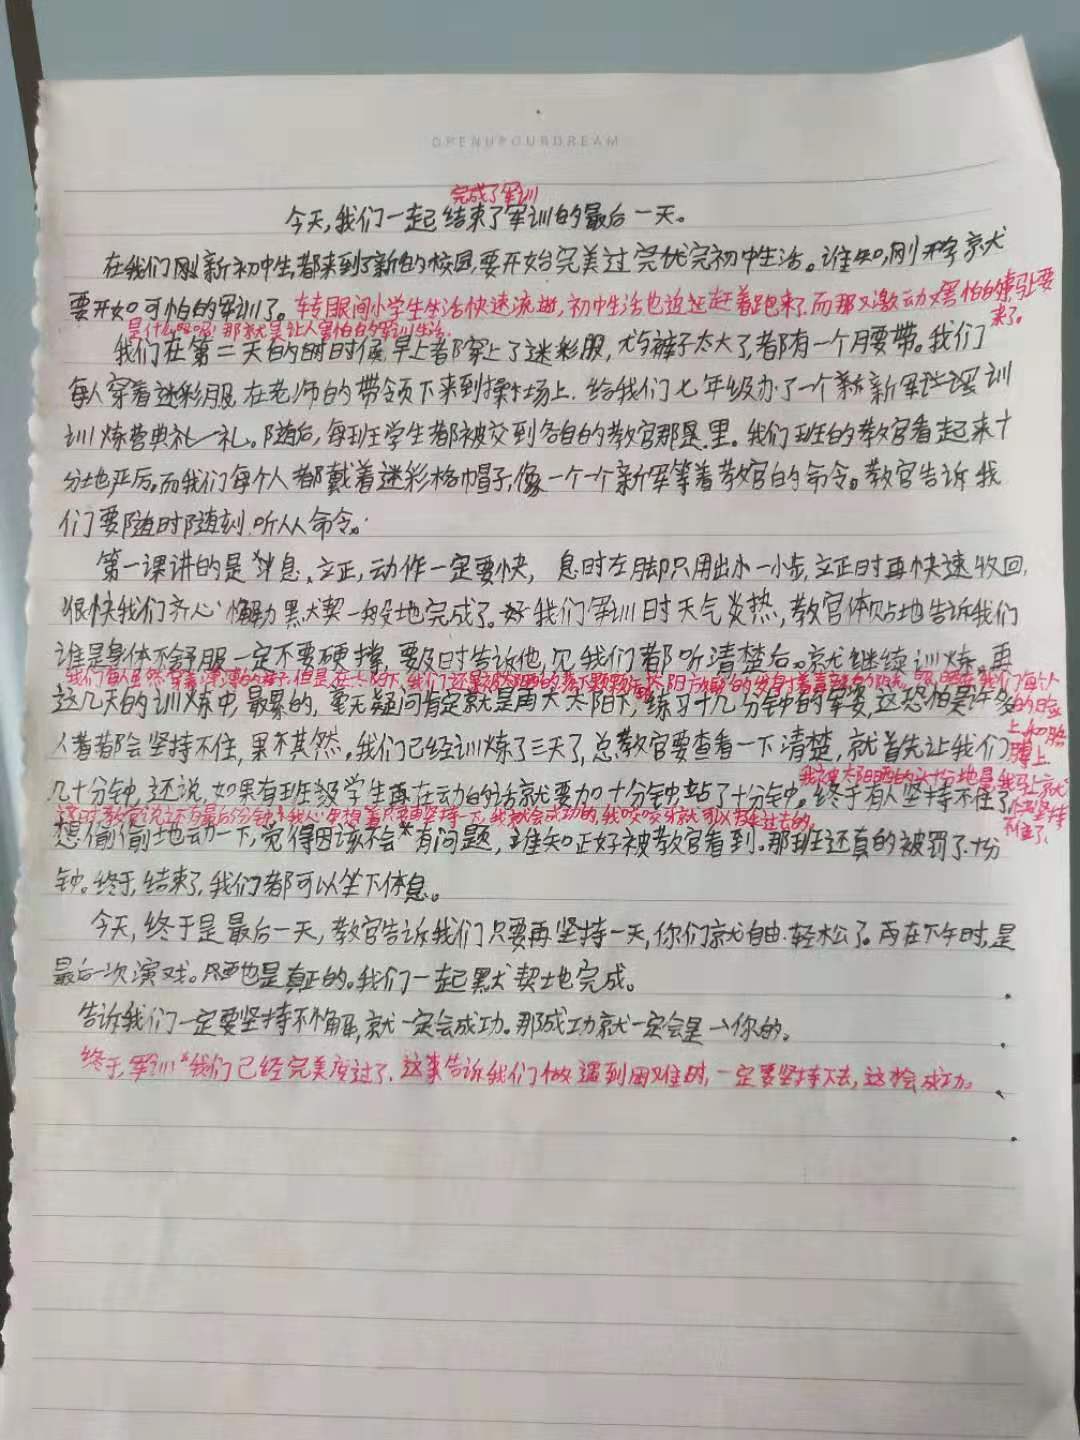 OPENUPOURDREAM
完成了军训
今天,我们一起结束了军训的最后一天。
在我们刚新初中生,都来到了新的校园,要开始完美过完初中生活。谁知,刚开学就
要开始可怕的军训了。转眼间小学生生活快速流逝,初中生活也边赶着跑来了,而那又激动又害怕的马上要
来了。
是什么呢?那就是让人害怕的军训生活。
我们在第二天的时候,早上都穿上了迷彩服,裤子太大了,都有一个腰带。我们
每人穿着迷彩服,在老师的带领下来到操场上,给我们七年级办了一个新军训
训炼营典礼。随后,每班学生都被交到各自的教官那里。我们班的教官看起来十
分地严厉。而我们每个人都戴着迷彩帽子,像一个一个新军等着教官的命令。教官告诉我
们要随时随刻听从命令。
第一课讲的是稍息、立正,动作一定要快,息时左脚只用出小一小步,立正时再快速收回,
很快我们齐心默契一般地完成了。我们军训时天气炎热,教官体贴地告诉我们
谁是身体不舒服一定不要硬撑,要及时告诉他,我们都听清楚后,就继续训炼。再
我们每人虽然穿着但是在太阳下,我们还是被晒的太阳我们每个人
这几天的训炼中,最累的,毫无疑问肯定就是再大太阳下,练习十几分钟的军姿,这恐怕是许多
的
上和胳
人都会坚持不住,果不其然。我们已经训炼了三天了,总教官要查看一下清楚,就首先让我们
膊上
我被太阳晒的十分地我马上就
几十分钟,还说,如果有班级学生再在动的话就要加十分钟,站了十分钟。终于有人坚持不住了
坚持
不住了,
这时,教官说还有最后分钟,我心里想着只要再坚持一下,我就会成功的,我咬咬牙就可以过去的。
想偷偷地动一下,觉得因该不会有问题,谁知正好被教官看到。那班还真的被罚了十分
钟。终于,结束了,我们都可以坐下休息。
今天,终于是最后一天,教官告诉我们只要再坚持一天,你们就自由轻松了。再在下午时,是
最后一次演戏。也是真正的。我们一起默契地完成。
告诉我们一定要坚持不懈,就一定会成功。那成功就一定会是你的。
终于,军训我们已经完美度过了,这来告诉我们做遇到困难时,一定要坚持下去,这才会成功。